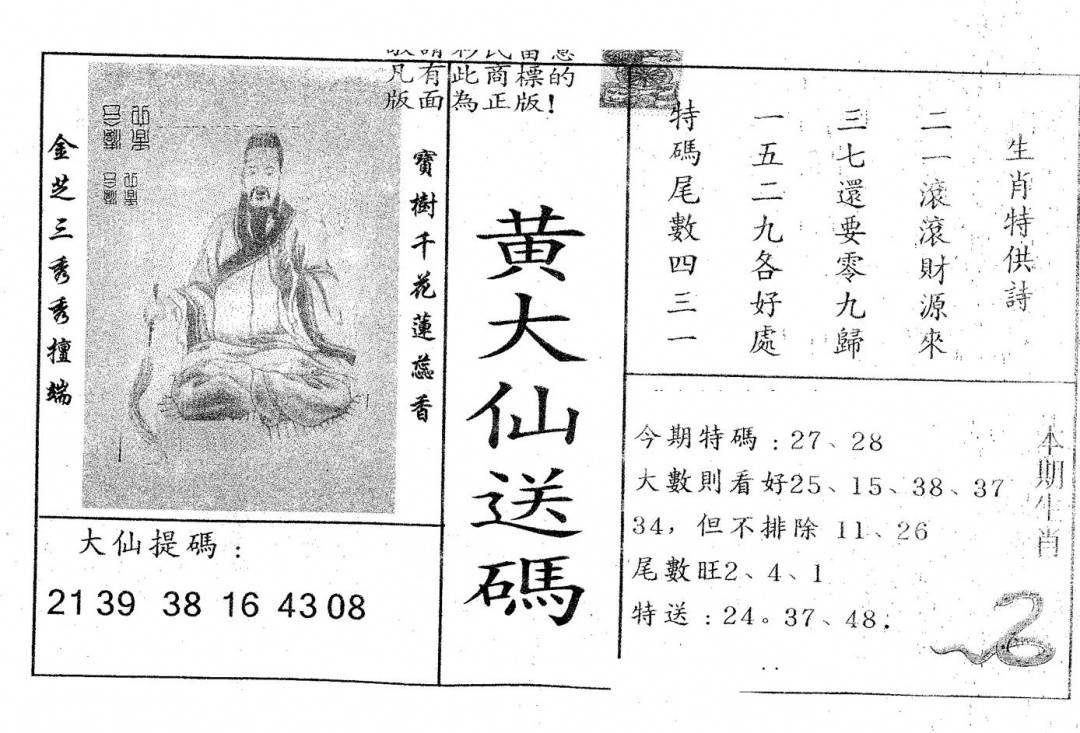 敬請彩民留意
凡有此商標的
版面為正版!
寶樹千花蓮蕊香
金芝三秀秀擅端
大仙提碼:
21 39 38 16 43 08
黃大仙送碼
生肖特供詩
二一滾滾財源來
三七還要零九歸
一五二九各好處
特碼尾數四三一
今期特碼:27、28
大數則看好25、15、38、37
34,但不排除 11、26
尾數旺2、4、1
特送:24。37、48.
本期生肖